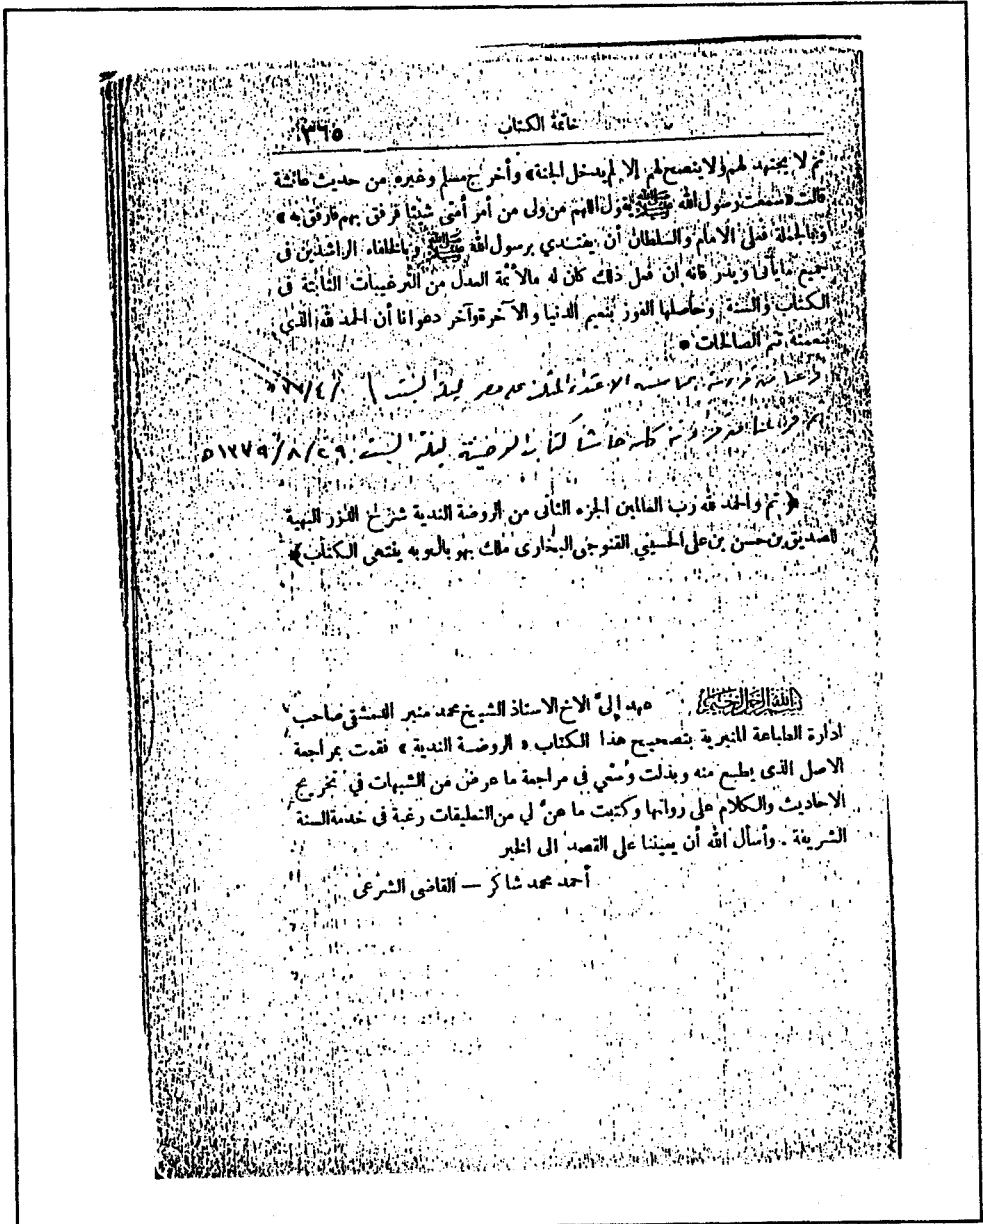 خاتمة الكتاب ٣٦٥
ثم لا يجتهد لهم ولا ينصح لهم إلا لم يدخل الجنة» وأخرج مسلم وغيره من حديث عائشة
قالت «سمعت رسول الله ﷺ يقول اللهم من ولى من أمر أمتى شيئا فرفق بهم فارفق به»
وبالجملة فعلى الامام والسلطان أن يقتدي برسول الله ﷺ وبالخلفاء الراشدين فى
جميع ما يأتى ويذر فانه ان فعل ذلك كان له مالأئمة العدل من الترغيبات الثابتة فى
الكتاب والسنة وحاصلها الفوز بنعيم الدنيا والآخرة وآخر دعوانا أن الحمد لله الذي
بنعمته تتم الصالحات *
من مصر ليلة السبت
كتاب ليلة السبت ٢٩/٨/١٣٧٩ه
﴿ تم والحمد لله رب العالمين الجزء الثانى من الروضة الندية شرح الدرر البهية
لصديق بن حسن بن على الحسيني القنوجى البخارى ملك بهوبال وبه ينتهى الكتاب ﴾
بسم الله الرحمن الرحيم عهد إلىَّ الاخ الاستاذ الشيخ محمد منير الدمشقى صاحب
ادارة الطباعة المنيرية بتصحيح هذا الكتاب «الروضة الندية» فقمت بمراجعة
الاصل الذى يطبع منه وبذلت وسعي فى مراجعة ما عرض من الشبهات في تخريج
الاحاديث والكلام على رواتها وكتبت ما عنَّ لي من التعليقات رغبة فى خدمة السنة
الشريفة . وأسأل الله أن يعيننا على القصد الى الخير
أحمد محمد شاكر — القاضى الشرعى